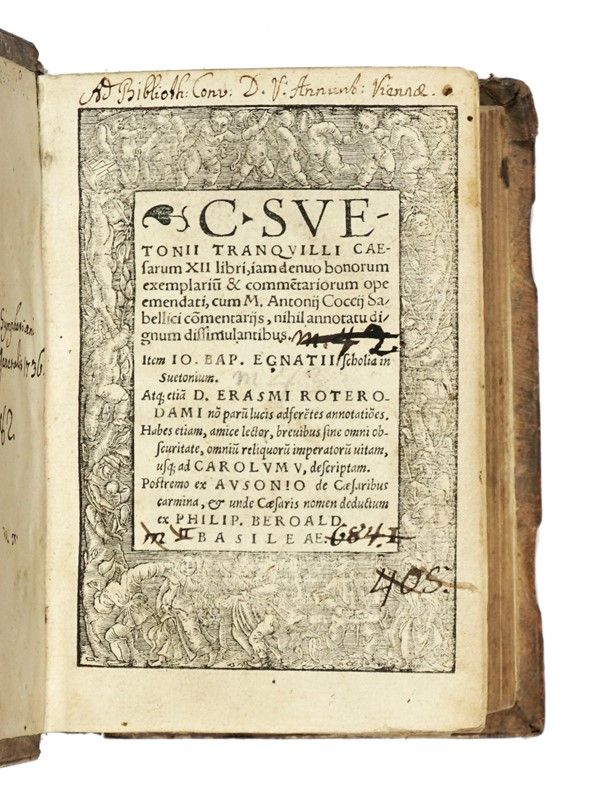 Ad Biblioth: Conv: D. V. Annunt: Viennæ.
C. SVE-
TONII TRANQVILLI CAE-
sarum XII libri, iam denuo bonorum
exemplariũ & commẽtariorum ope
emendati, cum M. Antonij Coccij Sa-
bellici cõmentarijs, nihil annotatu di-
gnum dissimulantibus. m. 42.
Item IO. BAP. EGNATII scholia in
Suetonium.
Atq; etiã D. ERASMI ROTERO-
DAMI nõ parũ lucis adferẽtes annotatiões.
Habes etiam, amice lector, brevibus sine omni ob-
scuritate, omniũ reliquorũ imperatorũ uitam,
usq; ad CAROLVM V, descriptam.
Postremo ex AVSONIO de Cæsaribus
carmina, & unde Cæsaris nomen deductum
ex PHILIP. BEROALD.
m II BASILEAE. 684.I
405.